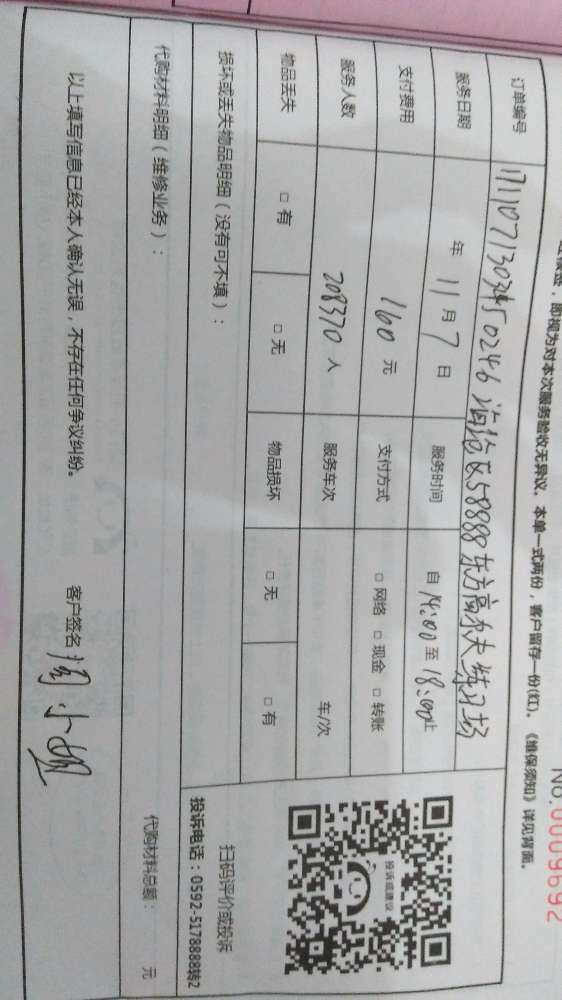 No.0009692
即视为对本次服务验收无异议。本单一式两份，客户留存一份(红)。《维保须知》详见背面。
订单编号 1711071303450246 海沧区58888东方高尔夫练习场
服务日期 年 11 月 7 日 服务时间 自 14:00 至 18:00 止
支付费用 160 元 支付方式 □ 网络 □ 现金 □ 转账
服务人数 208370 人 服务车次 车/次
物品丢失 □ 有 □ 无 物品损坏 □ 无 □ 有
损坏或丢失物品明细（没有可不填）：
代购材料明细（维修业务）：
代购材料总额： 元
以上填写信息已经本人确认无误，不存在任何争议纠纷。 客户签名 周小姐
投诉或建议
扫码评价或投诉
投诉电话：0592-5178888转2